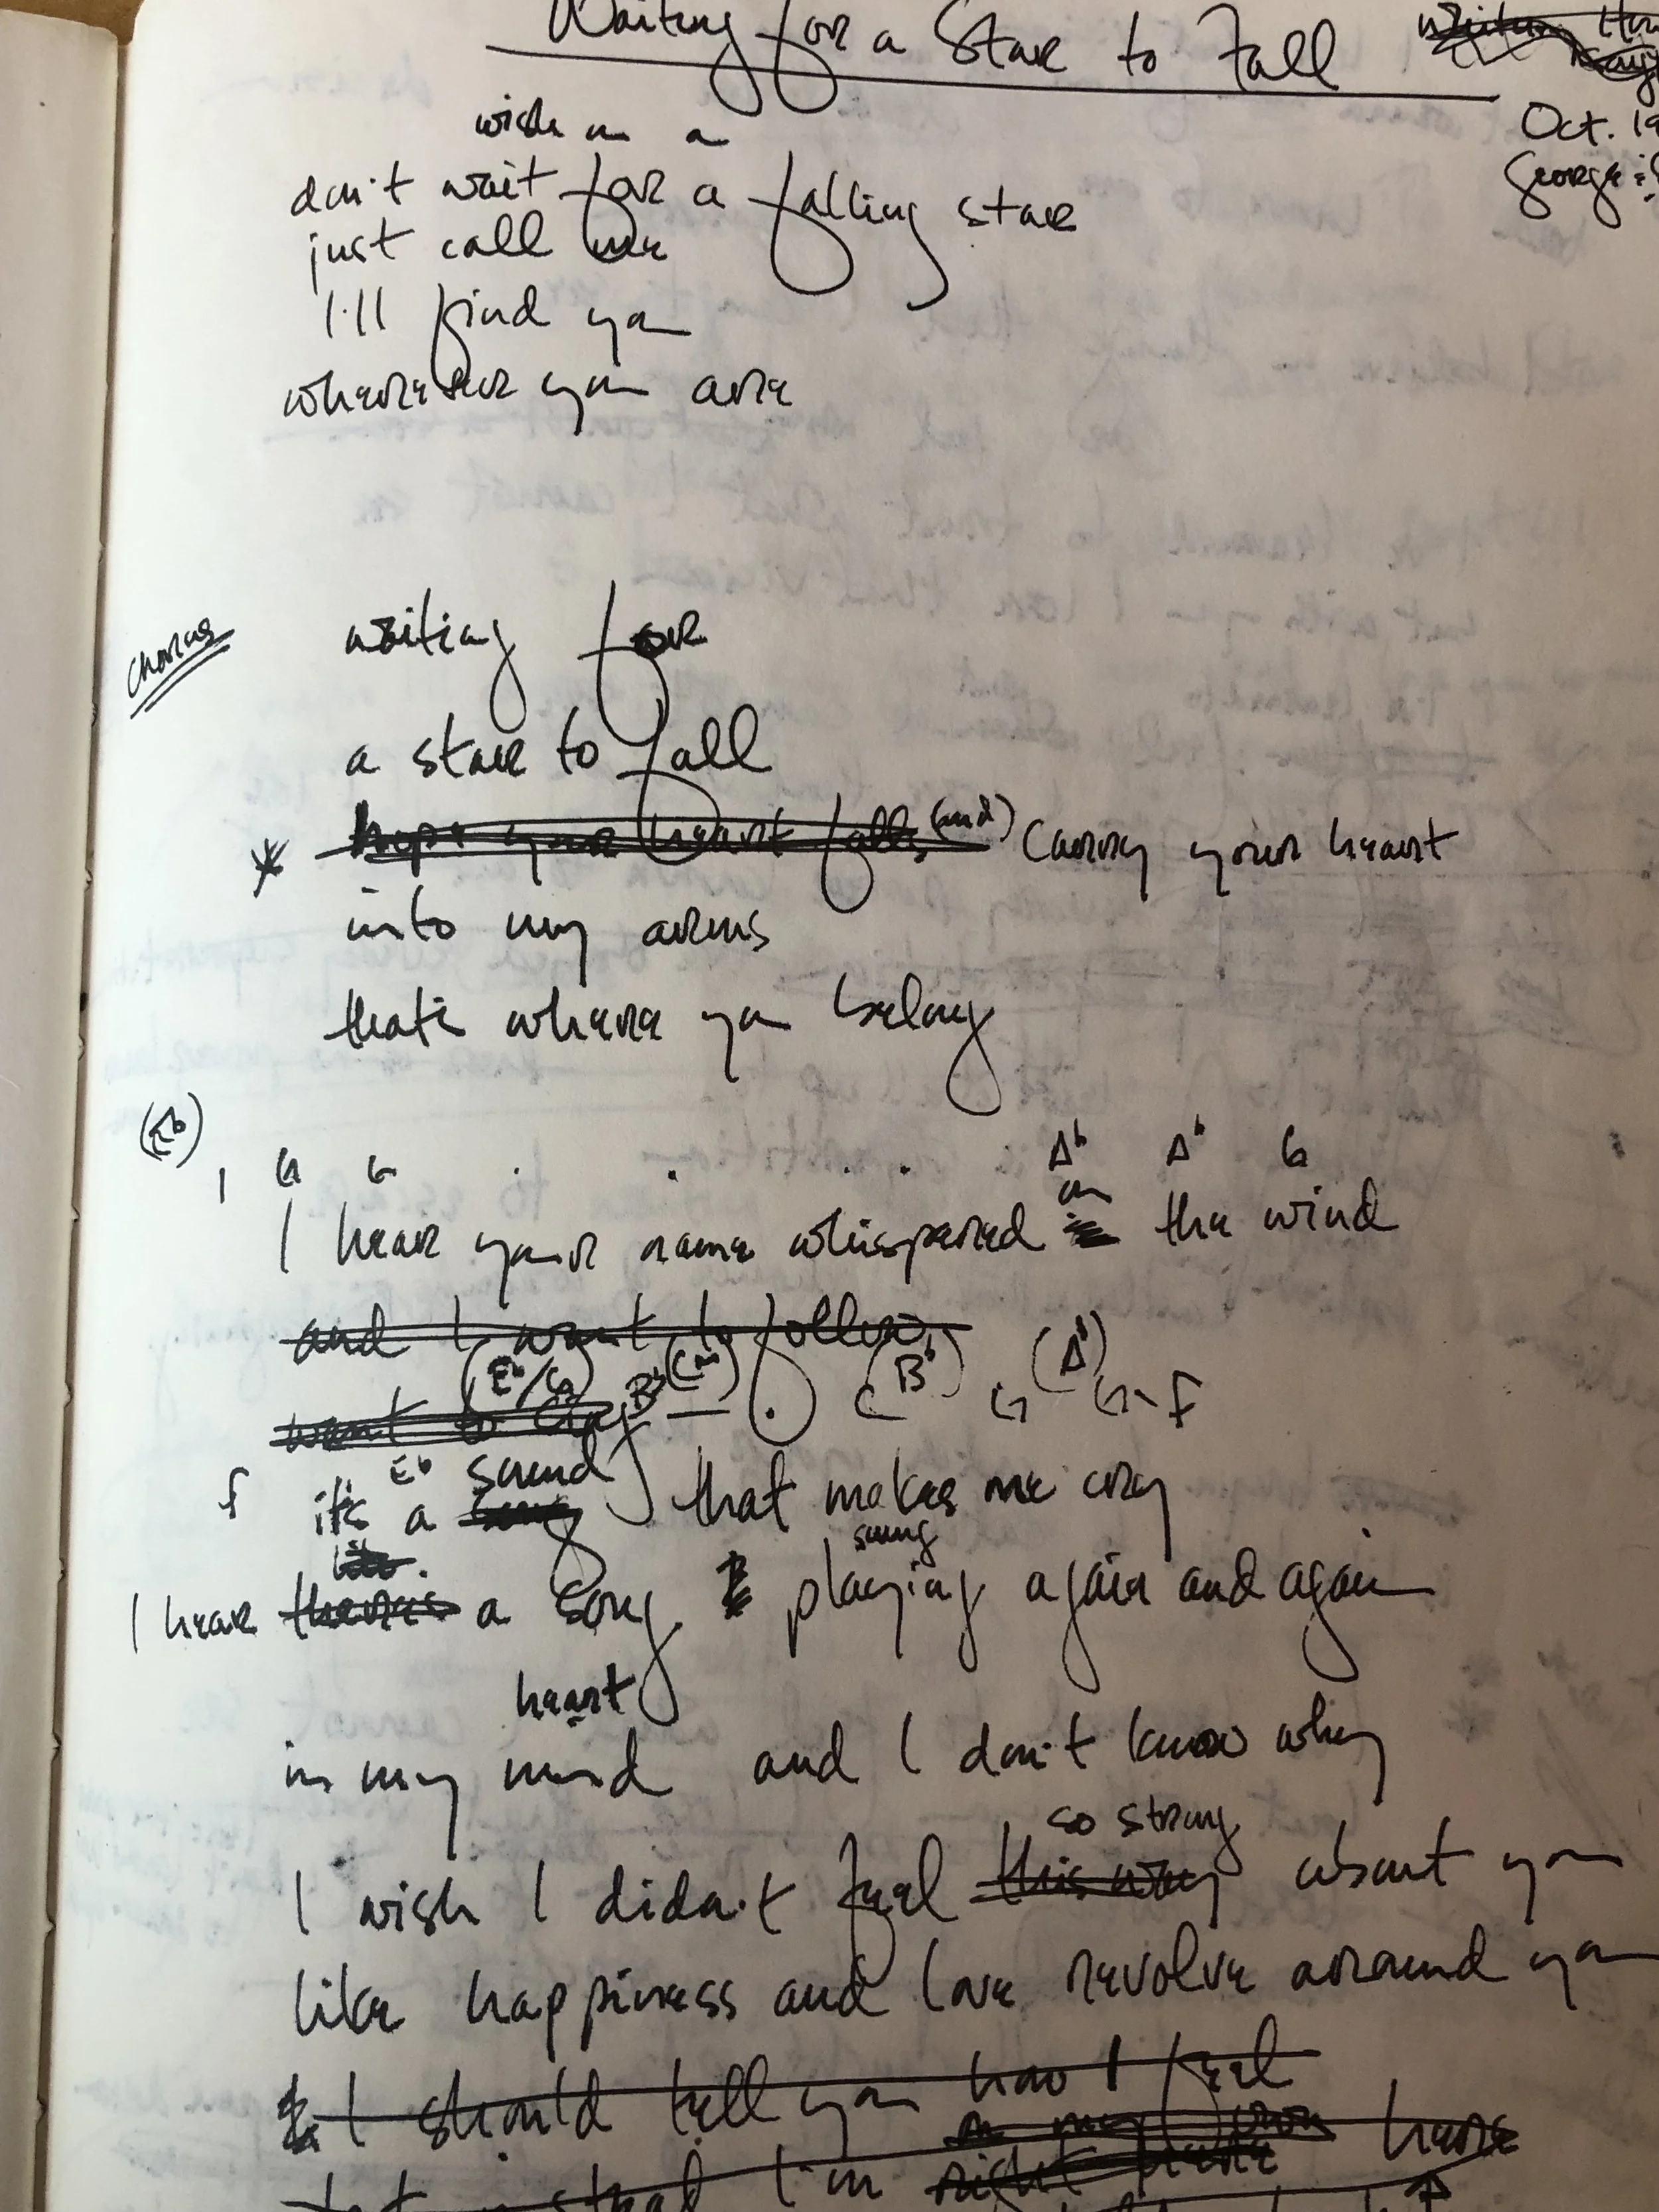 Waiting for a Star to Fall
Oct. 19
George &
wish on a
don't wait for a falling star
just call me
I'll find you
wherever you are
Chorus
waiting for
a star to fall
* hope your heart falls (and) carry your heart
into my arms
that's where you belong
(Eb)
G G Ab Ab G
on
I hear your name whispered the wind
and I want to follow
(Eb/G) Bb (Cm) (Bb) G (Ab) G F
want to cry
f Eb sound
it's a song that makes me cry
sung
I hear there's a song playing again and again
heart
in my mind and I don't know why
so strong
I wish I didn't feel this way about you
like happiness and love revolve around you
I should tell you how I feel
in my own here
instead I'm right here